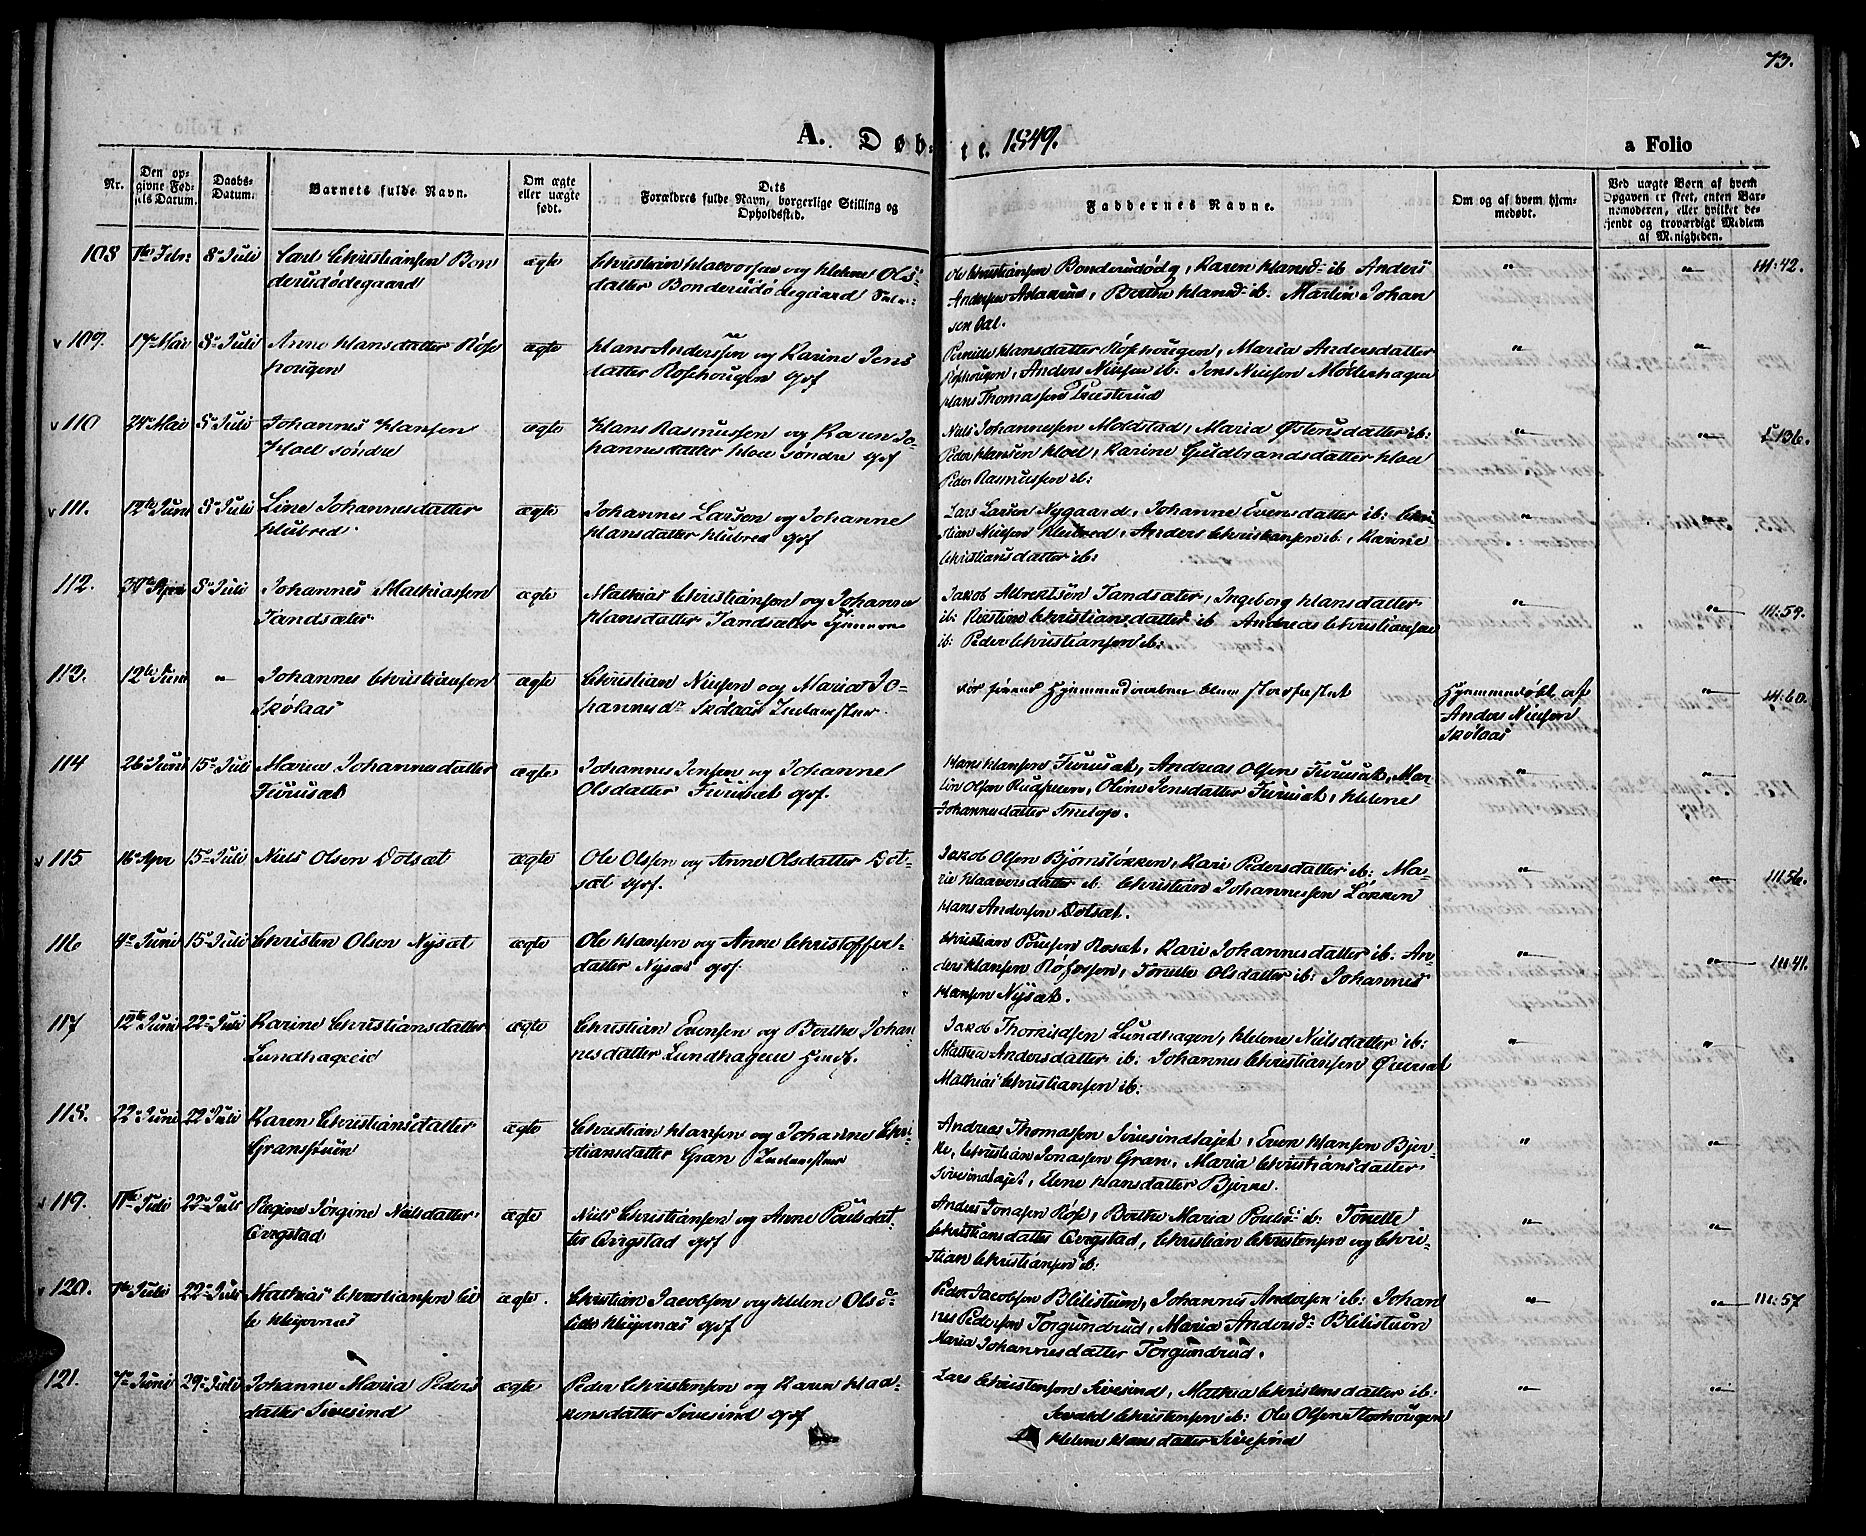 73.
A. Døbte. 1849.
a Folio
Nr.
Den op-
givne Fød-
sels Datum.
Daabs-
Datum.
Barnets fulde Navn.
Om ægte
eller uægte
født.
Dets
Forældres fulde Navn, borgerlige Stilling og
Opholdssted.
Faddernes Navne.
Om og af hvem hjem-
medøbt.
Ved uægte Børn af hvem
Opgaven er skeet, enten Bar-
nemoderen, eller hvilket be-
kjendt og troværdigt Medlem
af Menigheden.
108 8de Juli Carl Christiansen Bon
derudødegaard
ægte
Christian Halvorsen og Helene Ols-
datter Bonderudødegaard
Ole Christiansen Bonderudødg, Karen Hansd. ib. Anders
Andersen, Berthe Hansd. ib. Martin Johan
sen Dal.
" " 111:42.
109. 17de Mai 8de Juli Anne Hansdatter Røse
hougen
ægte
Hans Anderssen og Karine Jens
datter Røsehougen gjf
Pernille Hansdatter Røsehougen, Maria Andersdatter
Røsehougen, Anders Nielsen ib. Jens Nielsen Møderhagen
Hans Thomassen Præsterud
" "
110 24de Mai 8de Juli Johannes Hansen
Hoel søndre
ægte
Hans Rasmussen og Karen Jo-
hannesdatter Hoel søndre gjf
Niels Johannessen Moldstad, Maria Østensdatter ib:
Peder Hansen Hoel, Karine Guldbrandsdatter Hoel
Peder Rasmussen ib:
" " 136.
111. 12te Juni 8de Juli Line Johannesdatter
Hubred
ægte
Johannes Larsen og Johanne
Hansdatter Hubred gjf
Lars Larsen Nygaard, Johanne Evensdatter ib: Chri
stian Nielsen Hubred, Anders Christiansen ib, Karine
Christiansdatter ib:
" "
112. 30te April 8de Juli Johannes Mathiassen
Tandsæter
ægte
Mathias Christiansen og Johanne
Hansdatter Tandsæter
Jakob Albertsen Tandsæter, Ingeborg Hansdatter
ib: Kirstine Christiansdatter ib Andreas Christiansen
ib: Peder Christiansen ib:
" " 111:59.
113. 12te Juni " Johannes Christiansen
Skølaas
ægte
Christian Nielsen og Maria Jo-
hannesd. Skølaas Inderster.
før Hjemmedaaben blev stadfæstet
Hjemmedøbt af
Anders Nielsen
Skølaas
" 111:60.
114 26de Juni 15de Juli Maria Johannesdatter
Furusæt
ægte
Johannes Jensen og Johanne
Olsdatter Furusæt gjf.
Hans Hansen Furusæt, Andreas Olsen Furusæt, Mar-
tin Olsen, Oline Jensdatter Furusæt, Helene
Johannesdatter.
" "
115 16de Apr 15de Juli Niels Olsen Dotsæt
ægte
Ole Olssen og Anne Olsdatter Dot-
sæt gjf.
Jakob Olsen Bjørnsløkken, Kari Pedersdatter ib: Ma-
rie Haavorsdatter ib. Christian Johannessen Løkken
Hans Andersen Dotsæt.
" " 111:56.
116 4de Juni 15de Juli Christen Olsen Nysæt
ægte
Ole Hansen og Anne Christoffer-
datter Nysæt gjf.
Christian Poulsen Rosæt, Kari Johannesdatter ib: An-
ders Hansen, Tonette Olsdatter ib: Johannes
Hansen Nysæt.
" " 111:41.
117 12te Juni 22de Juli Karine Christiansdatter
Lundhageeie
ægte
Christian Evensen og Berthe Johan
nesdatter Lundhageeie
Jakob Thorkildsen Lundhagen, Helene Nielsdatter ib:
Mathea Andersdatter ib: Johannes Christiansen
Mathias Christiansen ib:
" "
118. 22de Juni 22de Juli Karen Christiansdatter
Gransstuen
ægte
Christian Hansen og Johanne Chri-
stiansdatter Gran Inderster
Andreas Thomassen Sivesindlajet, Even Hansen Bjer-
ke, Christian Jonassen Gran, Maria Christiansdatter
Sivesindlajet, Elene Hansdatter Bjerke.
" "
119. 11te Juli 22de Juli Regine Jørgine Nielsdatter
Avgstad
ægte
Niels Christiansen og Anne Poulsdat
ter Avgstad gjf
Anders Jonasen Røse, Berthe Maria Poulsd. ib: Tonette
Christiansdatter Avgstad, Christian Christensen og Chri-
stian Christiansen ib:
" "
120. 7de Juli 22de Juli Mathias Christiansen Lil
le Hjernæs
ægte.
Christian Jacobsen og Helene Olsd
Lille Hjernæs gjf
Peder Jacobsen Blilistuen, Johannes Andersen ib: Johan
nes Pedersen Torgundrud, Maria Andersd. Blilistuen
Maria Johannesdatter Torgundrud.
" " 111:57
121. 7de Juni 29de Juli Johanne Maria Peders
datter Sivesind
ægte
Peder Christensen og Karen Haa-
kensdatter Sivesind gjf
Lars Christensen Sivesind, Mathea Christensdatter ib:
Sevald Christensen ib: Ole Olsen Storhougen
Helene Hansdatter Sivesind
" "